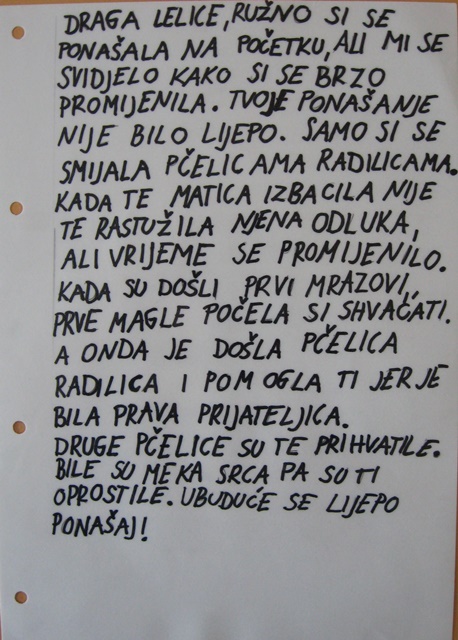 DRAGA LELICE, RUŽNO SI SE
PONAŠALA NA POČETKU, ALI MI SE
SVIDJELO KAKO SI SE BRZO
PROMIJENILA. TVOJE PONAŠANJE
NIJE BILO LIJEPO. SAMO SI SE
SMIJALA PČELICAMA RADILICAMA.
KADA TE MATICA IZBACILA NIJE
TE RASTUŽILA NJENA ODLUKA,
ALI VRIJEME SE PROMIJENILO.
KADA SU DOŠLI PRVI MRAZOVI,
PRVE MAGLE POČELA SI SHVAĆATI.
A ONDA JE DOŠLA PČELICA
RADILICA I POMOGLA TI JER JE
BILA PRAVA PRIJATELJICA.
DRUGE PČELICE SU TE PRIHVATILE.
BILE SU MEKA SRCA PA SU TI
OPROSTILE. UBUDUĆE SE LIJEPO
PONAŠAJ!